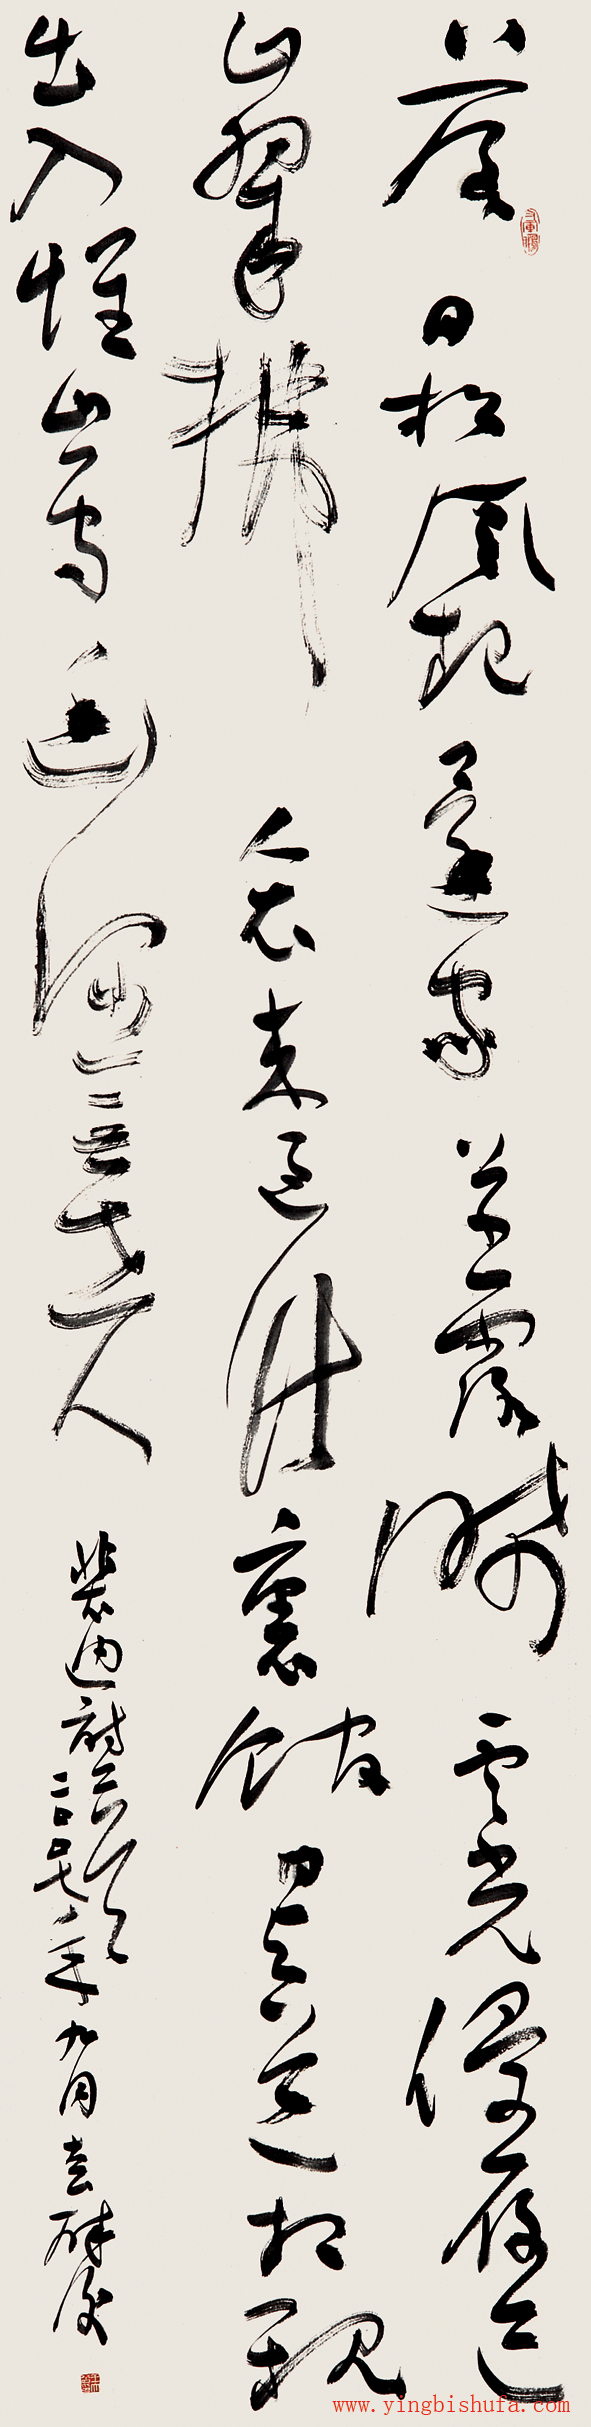 落日松風起還家草露晞雲光侵履迹
山翠拂人衣来過竹裏館日与道相親
出入惟山鳥幽深無世人
裴迪詩二首 年九月
www.yingbishufa.com